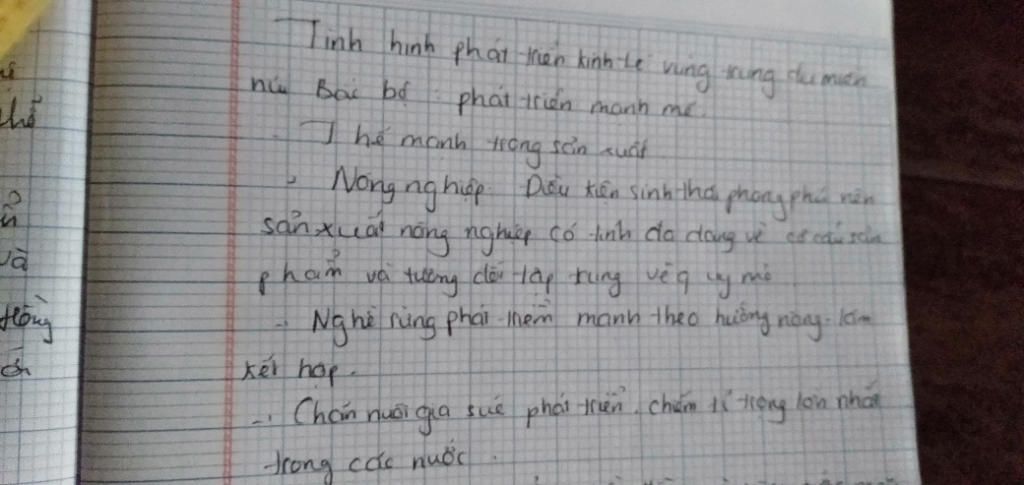 hể
Tình hình phát triển kinh tế vùng trung du miền
núi Bắc bộ : phát triển mạnh mẽ.
- Thế mạnh trong sản xuất
- Nông nghiệp. Điều kiện sinh thái phong phú nên
sản xuất nông nghiệp có tính đa dạng về cơ cấu sản
phẩm và tương đối tập trung về quy mô
- Nghề rừng phát triển mạnh theo hướng nông-lâm
kết hợp.
- Chăn nuôi gia súc phát triển, chiếm tỉ trọng lớn nhất
trong các nước.
và